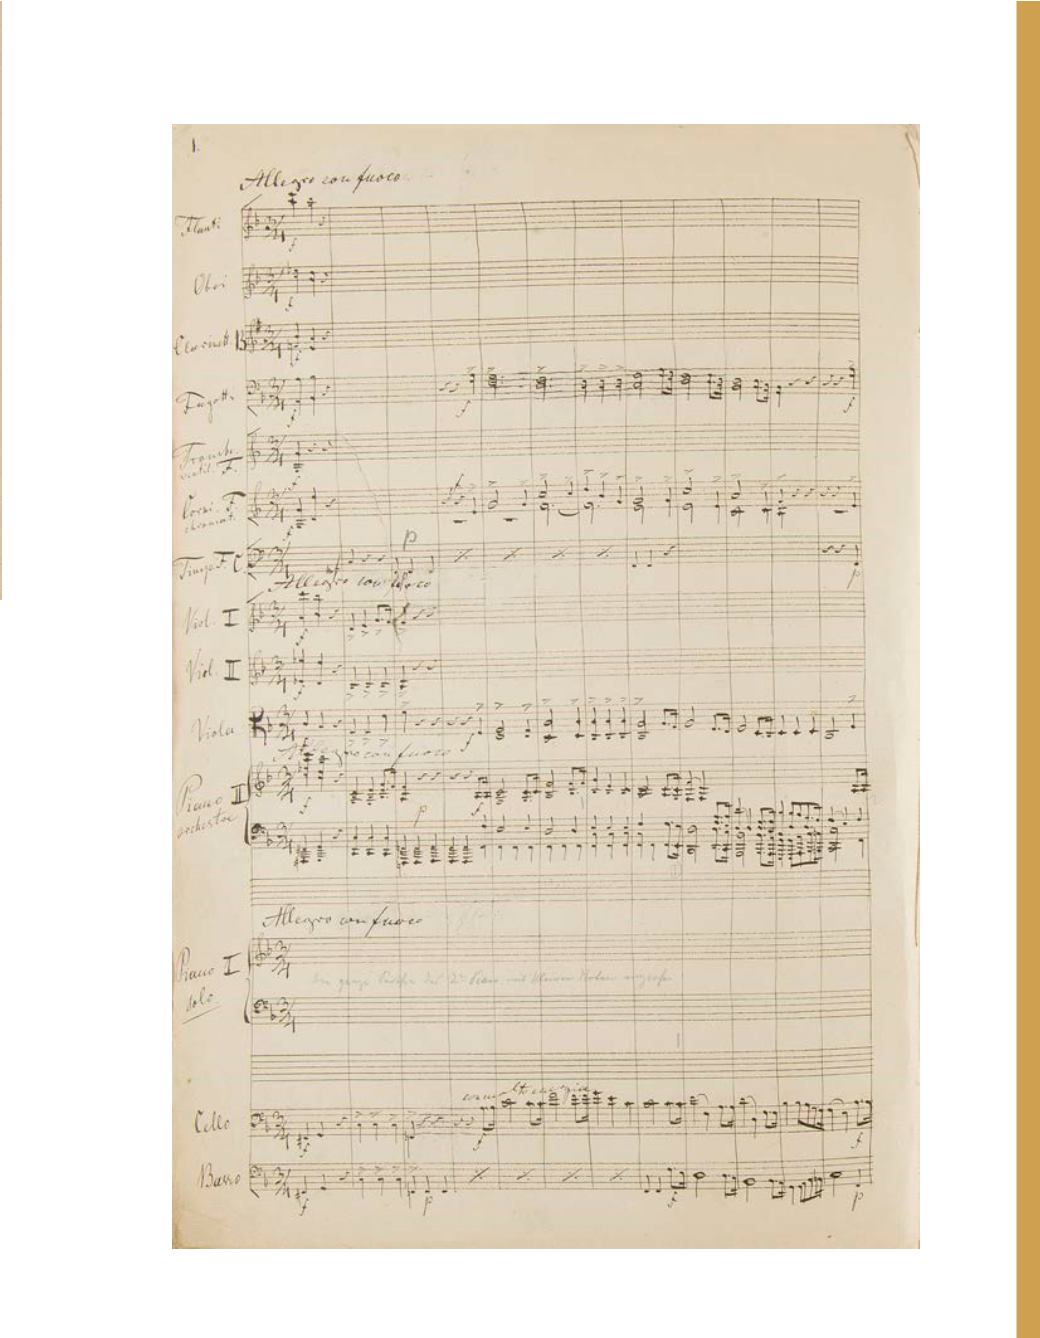 1.
Allegro con fuoco
Flauti
Oboi
Clarinett. B
Fagotti
Tromb.
ventil. F.
Corni. F
chromat.
p
Timp. F. C.
Allegro con fuoco
p
Viol. I
Viol. II
Viola
Allegro con fuoco
Piano II
orchestre
Allegro con fuoco
Piano I
solo
con molto energia
Cello
Basso